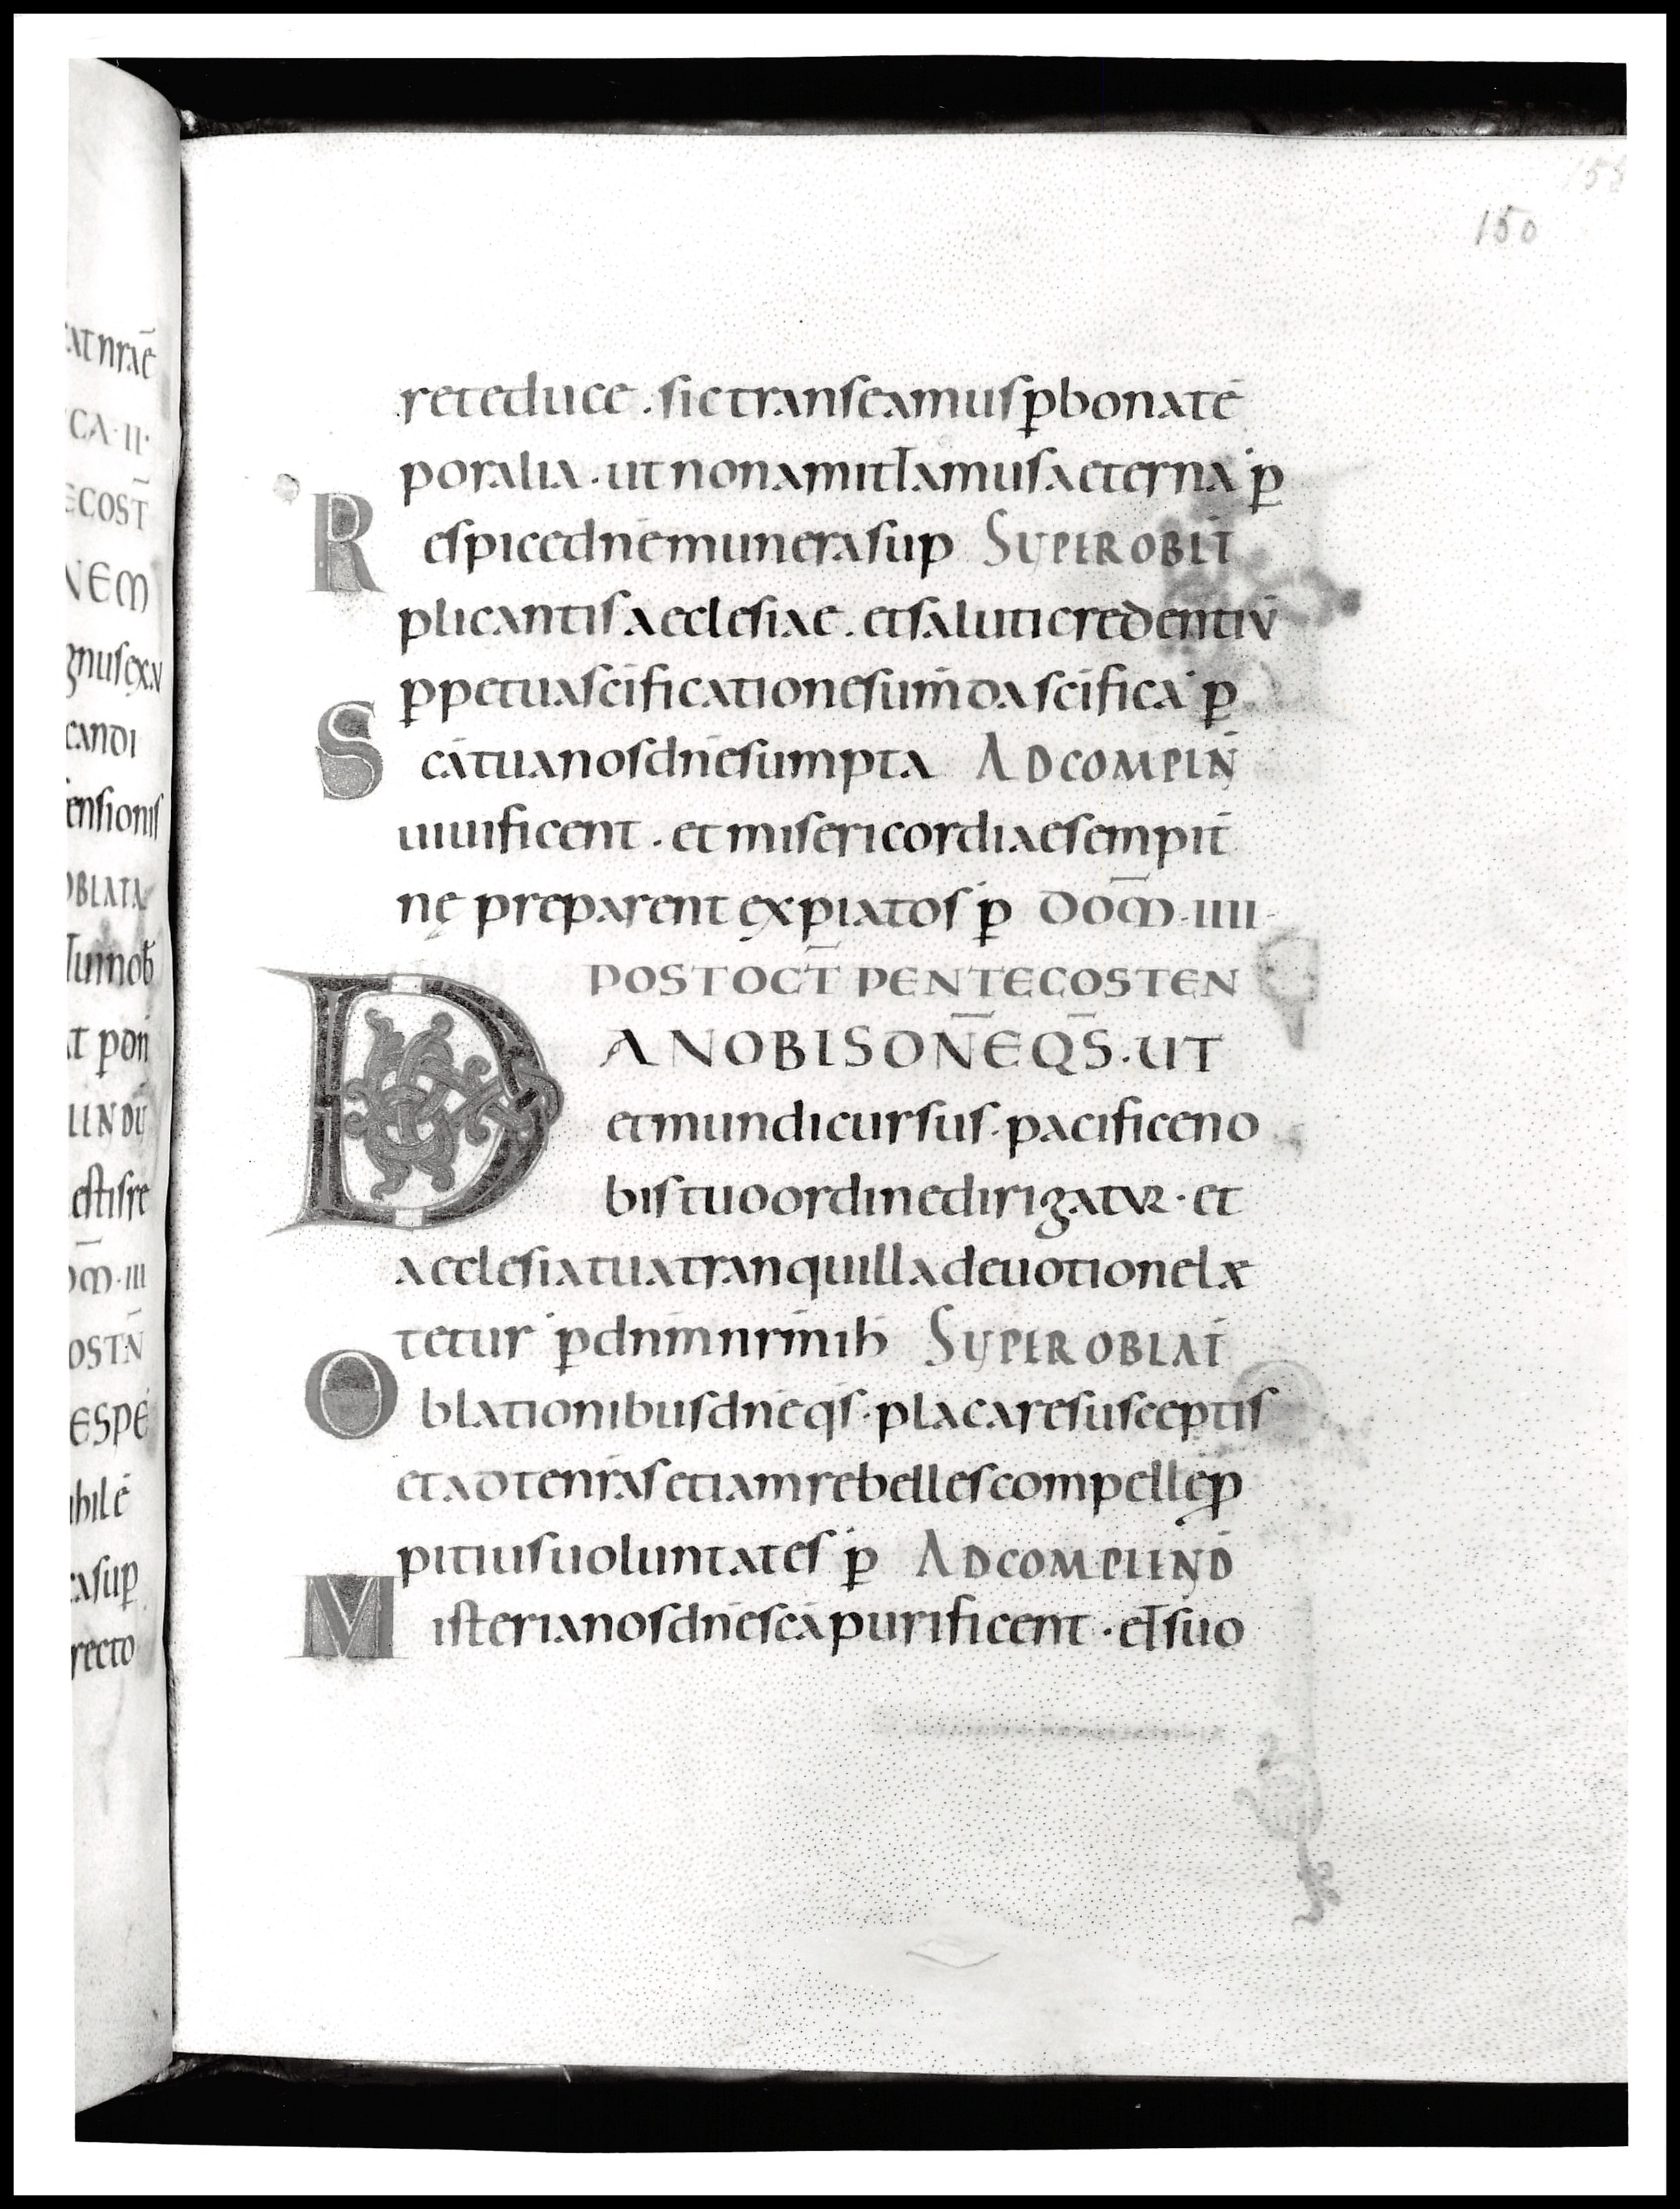 158
150
reteduce . sic transeamus p̱ bona tē
poralia . ut non amittamus aeterna p̱
Respice dn̄e munera sup SUPER OBLT̄
plicantis aecclesiae . et saluti credentiū
p̱petua sc̄ificatione sum̄da sc̄ifica p̱
Sc̄a tua nos dn̄e sumpta AD COMPLN̄
uiuificent . et misericordiae sempit̄
nę preparent expiatos p̱ DOM̄ . IIII .
POST OCT̄ PENTECOSTEN
DA NOBIS DN̄E QS̄ . UT
et mundi cursus . pacifice no
bis tuo ordine dirigatur . et
aecclesia tua tranquilla deuotione lae
tetur p̱ dn̄m nr̄m ih̄ SUPER OBLAT̄
Oblationibus dn̄e qs̄ . placare susceptis
et ad te nr̄as etiam rebelles compelle p̱
pitius uoluntates p̱ AD COMPLEND̄
Misteria nos dn̄e sc̄a purificent . et suo